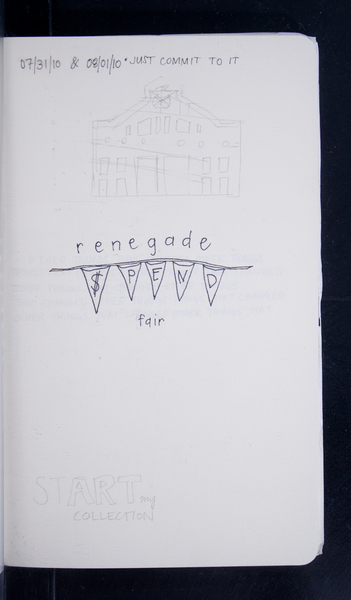 07/31/10 & 08/01/10 • JUST COMMIT TO IT
renegade
$PEND
fair
START my
COLLECTION